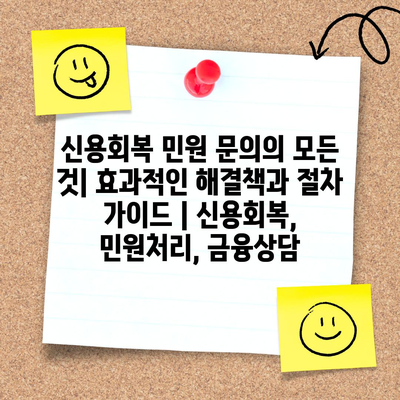 신용회복 민원 문의의 모든
것| 효과적인 해결책과 절차
가이드 | 신용회복,
민원처리, 금융상담